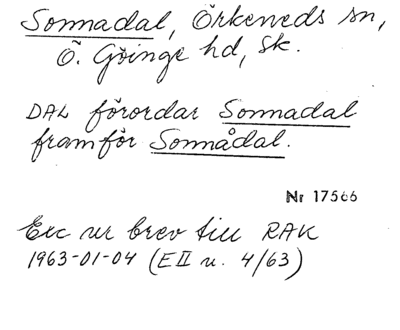 Sonnadal, Örkeneds sn,
Ö. Göinge hd, Sk.
DAL förordar Sonnadal
framför Sonnådal.
Nr 17566
Exc ur brev till RAK
1963-01-04 (EII u. 4/63)